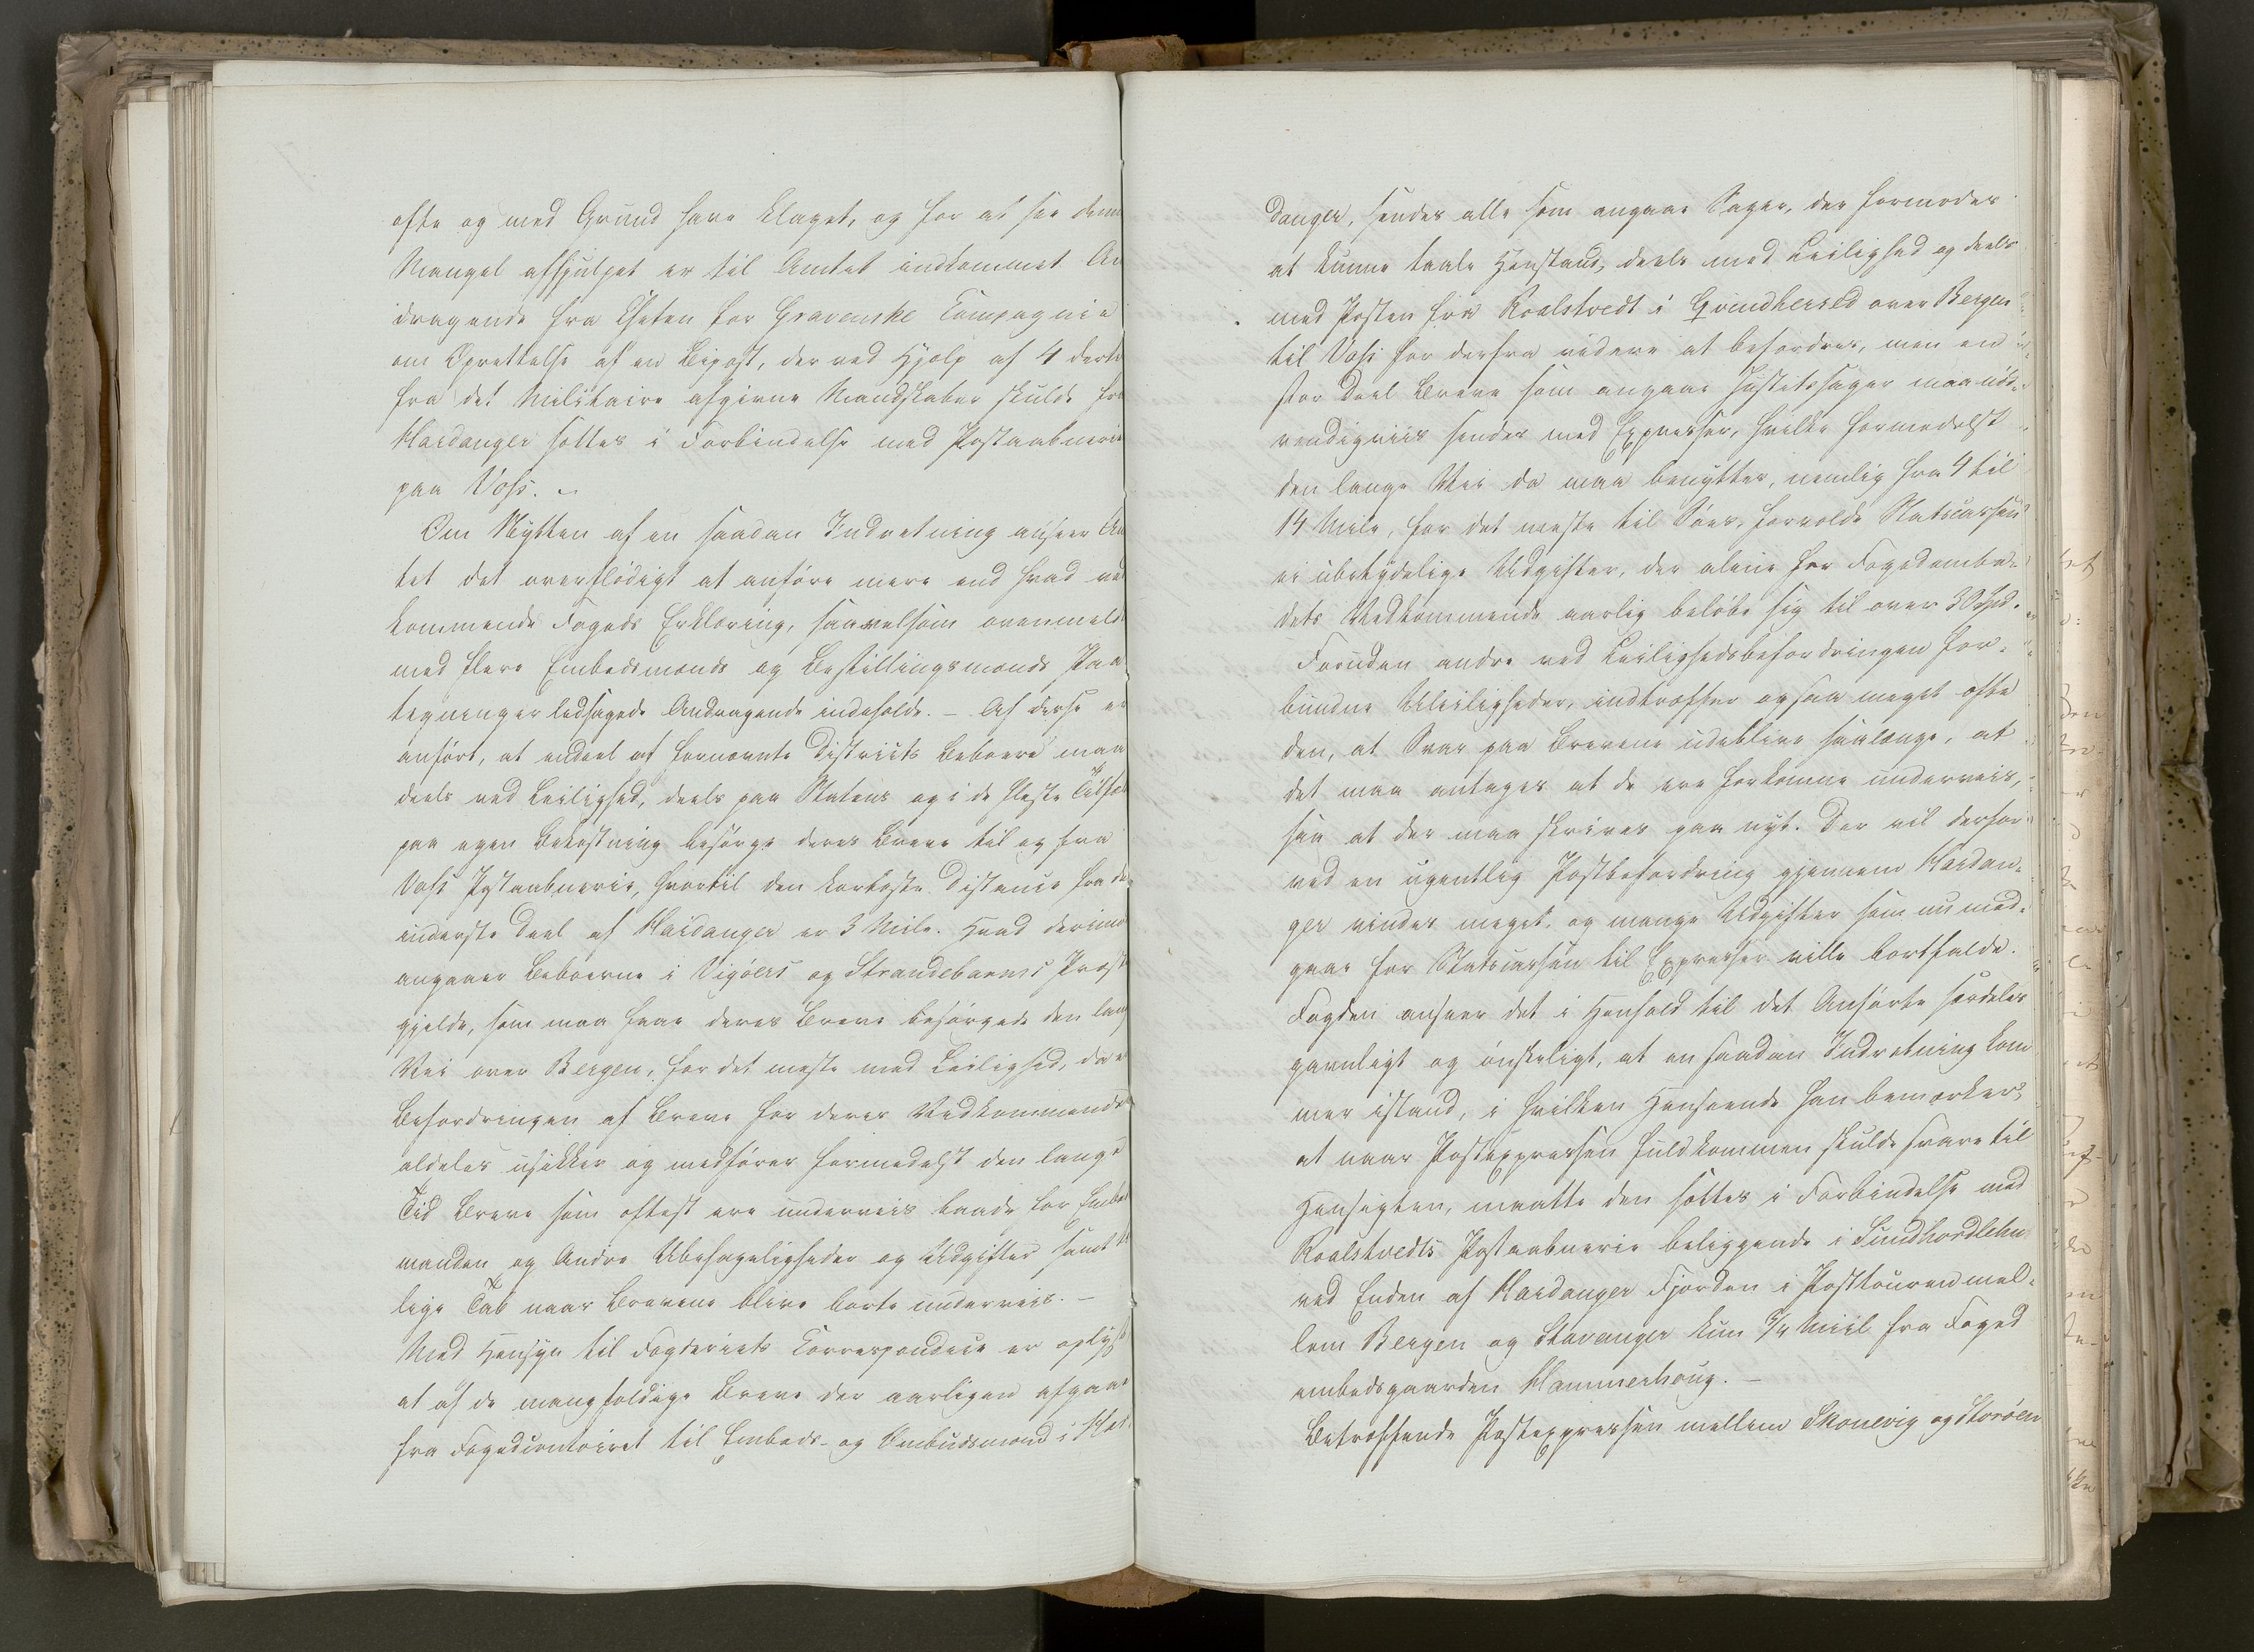 ofte og med Grund have klaget, og for at see denne
Mangel afhjulpet er til Amtet indkommet An
dragende fra Chefen for Gravenske Compagnie
om Oprettelse af en Bipost, der ved Hjelp af 4 dertil
fra det Militaire afgivne Mandskaber skulde fra
Hardanger sættes i Forbindelse med Postaabnerie
paa Voss. –
Om Nytten af en saadan Indretning anseer Am
tet det overflödigt at anföre mere end hvad ved
kommende Fogeds Erklæring, saavelsom ovenmeldte
med flere Embedsmænds og Bestillingsmænds Paa
tegninger ledsagede Andragende indeholde. – Af disse er
anfört, at endeel af fornævnte Districts Beboere maa
deels ved Leilighed, deels paa Statens og i de fleste Tilfæl
paa egen Bekostning besörge deres Breve til og fra
Voss Postaabnerie, hvortil den korteste Distance fra de
inderste Deel af Hardanger er 3 Mile. Hvad derimod
angaaer Beboerne i Vigöers og Strandebarms Præste
gjelde, som maa faae deres Breve besörgede den lange
Vei over Bergen, for det meste med Leilighed, da er
Befordringen af Breve for deres Vedkommende
aldeles usikker og medförer formedelst den lange
Tid Breve som oftest ere underveis baade for Embeds
manden og Andre Ubehageligheder og Udgifter samt
lige Tab naar Brevene blive borte underveis. –
Med Hensyn til Fogderiets Correspondence er oplyst
at af de mangfoldige Breve der aarligen afgaae
fra Fogedcontoiret til Embeds- og Ombudsmænd i Har
danger, sendes alle som angaae Sager, der formodes
at kunne taale Henstand, deels med Leilighed og deels
med Posten fra Roalstvedt i Qvindherred over Bergen
til Voss for derfra videre at befordres, men en
stor Deel Breve som angaae Justitssager maa nöd-
vendigviis sendes med Expresser, hvilke formedelst
den lange Vei da maa benyttes, nemlig fra 4 til
14 Mile, for det meste til Söes, forvolde Statscassen
ei ubetydelige Udgifter, der alene for Fogedembe-
dets Vedkommende aarlig belöbe sig til over 30 Spd.
Foruden andre ved Leilighedsbefordringen for-
bundne Uleiligheder, indtræffer ogsaa meget ofte
den, at Svar paa Brevene udeblive saalænge, at
det maa antages at de ere forkomne underveis,
saa at der maa skrives paa nyt. Der vil derfor
ved en ugentlig Postbefordring gjennem Hardan-
ger vindes meget, og mange Udgifter som nu med-
gaae for Statscassen til Expresser ville bortfalde.
Fogden anseer det i Henhold til det Anförte særdeles
gavnligt og önskeligt, at en saadan Indretning kom
mer istand, i hvilken Henseende han bemærker,
at naar Postexpressen fuldkommen skulde svare til
Hensigten, maatte den sættes i Forbindelse med
Roalstvedts Postaabnerie beliggende i Sundhordlehn
ved Enden af Hardanger Fjorden i Posttouren mel-
lem Bergen og Stavanger kun ¾ Miil fra Foged
embedsgaarden Hammerhoug. –
Betræffende Postexpressen mellem Skonevig og Storöen